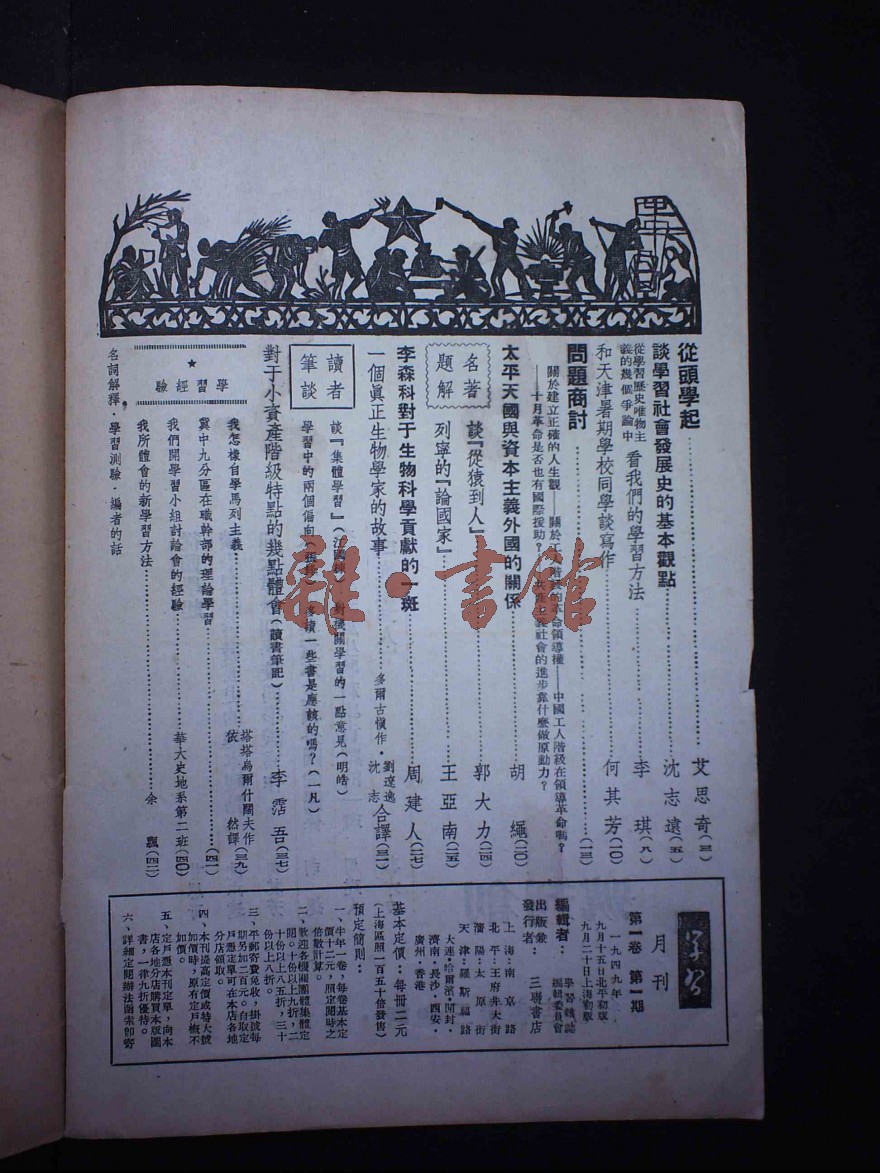 從頭學起⋯⋯艾思奇(三)
談學習社會發展史的基本觀點⋯⋯沈志遠(五)
從學習歷史唯物主
義的幾個爭論中
看我們的學習方法⋯⋯李琪(八)
和天津暑期學校同學談寫作⋯⋯何其芳(一〇)
問題商討⋯⋯(一三)
關於建立正確的人生觀——關於工人階級的革命領導權——中國工人階級在領導革命嗎?
——十月革命是否也有國際援助?——社會的進步靠什麼做原動力?
太平天國與資本主義外國的關係⋯⋯胡繩(二〇)
名著
題解
談『從猿到人』⋯⋯郭大力(二四)
列寧的『論國家』⋯⋯王亞南(二五)
李森科對于生物科學貢獻的一斑⋯⋯周建人(二七)
一個真正生物學家的故事⋯⋯多爾古慎作·劉遼逸 沈志 合譯(三一)
讀者
筆談
談『集體學習』 對機關學習的一點意見(明皓)
學習中的兩個偏向 多讀一些書是應該的嗎?(一凡)
對于小資產階級特點的幾點體會(讀書筆記)⋯⋯李霑吾(三七)
★
學習經驗
我怎樣自學馬列主義⋯⋯塔塔烏爾什闊夫作 依然譯(三九)
冀中九分區在職幹部的理論學習⋯⋯(四一)
我們開學習小組討論會的經驗⋯⋯華大史地系第二班(四〇)
我所體會的新學習方法⋯⋯余飄(四二)
名詞解釋·學習測驗·編者的話
學習
月刊
第一卷 第一期
一九四九年
九月十五日北平初版
九月二十日上海初版
編輯者:學習雜誌
編輯委員會
出版兼
發行者:三聯書店
上海:南京路
北平:王府井大街
瀋陽:太原街
天津:羅斯福路
大連·哈爾濱·開封·
濟南·長沙·西安·
廣州·香港
基本定價:每冊二元
(上海區照一百五十倍發售)
預定簡則:
一、半年一卷,每卷基本定
價十二元,照定閱時之
倍數計算。
二、歡迎各機關團體集體定
閱。十份以上九折,二
十份以上八五折,三十
份以上八折。
三、平郵寄費免收,掛號每
期另加二百元。自取定
戶憑定單可在本店各地
分店領取。
四、本刊提高定價或特大號
加價時,原有定戶概不
如價。
五、定戶憑本刊定單,向本
店各地分店購買本版圖
書,一律九折優待。
六、詳細定閱辦法函索卽寄
雜·書館